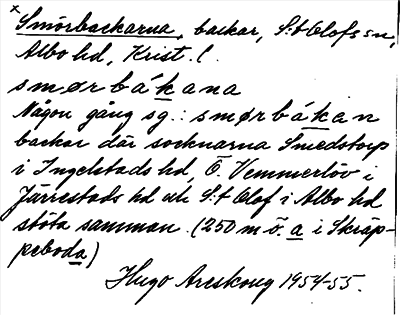 × Smörbackarna, backar, S:t Olofs sn,
Albo hd, Krist. l.
smørbákana
Någon gång sg.: smørbákan
backar där socknarna Smedstorp
i Ingelstads hd, Ö. Vemmerlöv i
Järrestads hd och S:t Olof i Albo hd
stöta samman. (250 m ö. a i Skräp-
peboda)
Hugo Areskoug 1954-55.